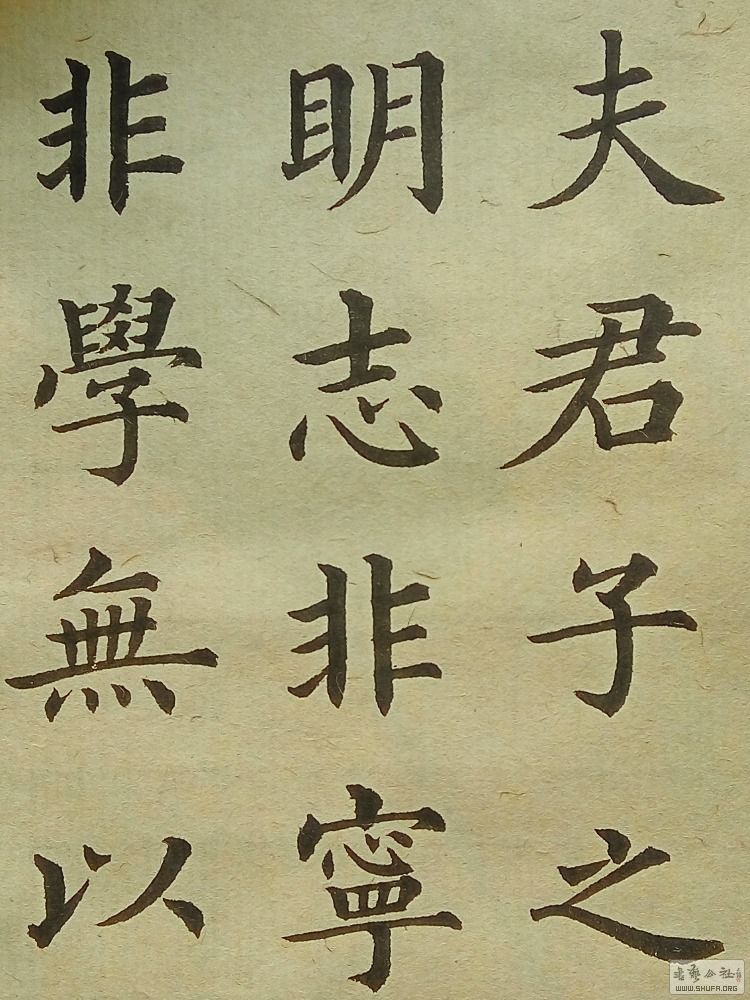 夫君子之
明志非寧
非學無以
书艺公社
WWW.SHUFA.ORG